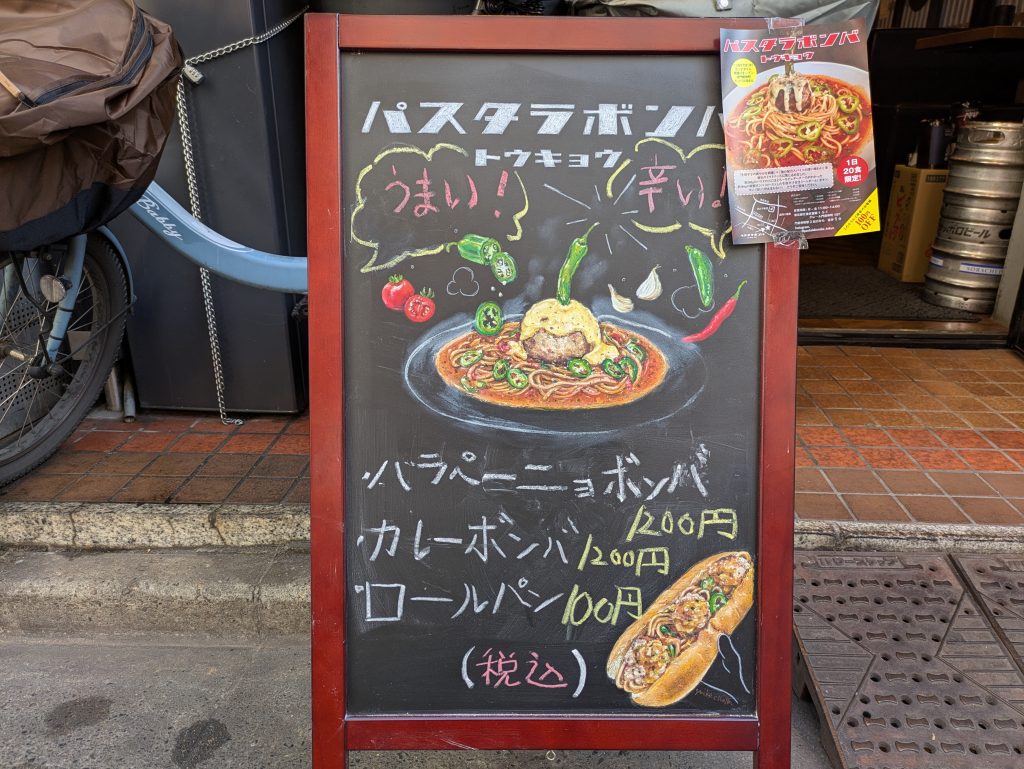 パスタラボンバ
トウキョウ
うまい!
辛い!
ハラペーニョボンバ
1200円
カレーボンバ 1200円
ロールパン 100円
(税込)
パスタラボンバ
トウキョウ
1日
20食
限定!
100円
OFF
Instagram
Bobby
サッポロビール